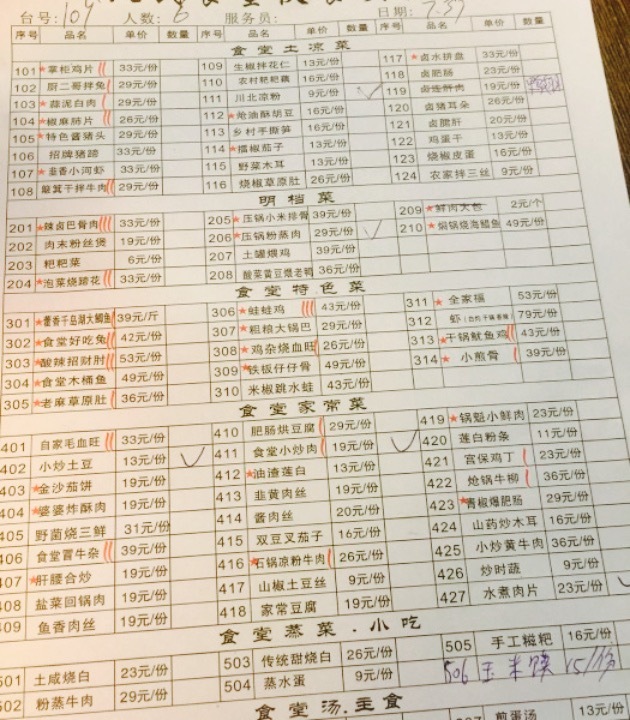 台号:109 人数:6 服务员: 日期:7.31
序号 品名 单价 数量 序号 品名 单价 数量 序号 品名 单价 数量
食堂土凉菜
101 ★掌柜鸡片 33元/份 109 生椒拌花仁 13元/份 117 ★卤水拼盘 33元/份
102 厨二哥拌兔 29元/份 110 农村粑粑藕 16元/份 118 卤肥肠 23元/份
103 ★蒜泥白肉 29元/份 111 川北凉粉 9元/份 119 19元/份
104 ★椒麻肺片 26元/份 112 ★炝油酥胡豆 16元/份 120 卤猪耳朵 26元/份
105 ★特色酱猪头 29元/份 113 乡村手撕笋 16元/份 121 卤脾肝 20元/份
106 招牌猪蹄 33元/份 114 ★擂椒茄子 16元/份 122 鸡蛋干 13元/份
107 ★韭香小河虾 33元/份 115 野菜木耳 13元/份 123 烧椒皮蛋 16元/份
108 簸箕干拌牛肉 29元/份 116 烧椒草原肚 26元/份 124 农家拌三丝 9元/份
明档菜
201 ★辣卤巴骨肉 33元/份 205 ★压锅小米排骨 39元/份 209 ★鲜肉大包 2元/个
202 肉末粉丝煲 19元/份 206 ★压锅粉蒸肉 29元/份 210 ★焖锅烧海鲳鱼 49元/份
203 粑粑菜 6元/份 207 土罐煨鸡 39元/份
204 ★泡菜烧蹄花 33元/份 208 酸菜黄豆煨老鸭 36元/份
食堂特色菜
301 ★藿香千岛湖大鲫鱼 39元/斤 306 ★蛙蛙鸡 43元/份 311 ★全家福 53元/份
302 ★食堂好吃兔 42元/份 307 ★粗粮大锅巴 29元/份 312 虾 79元/份
303 ★酸辣招财肘 53元/份 308 ★鸡杂烧血旺 26元/份 313 ★干锅鱿鱼鸡 43元/份
304 ★食堂木桶鱼 49元/份 309 ★铁板仔仔骨 49元/份 314 ★小煎骨 39元/份
305 ★老麻草原肚 36元/份 310 米椒跳水蛙 43元/份
食堂家常菜
401 自家毛血旺 33元/份 410 肥肠烘豆腐 29元/份 419 ★锅魁小鲜肉 23元/份
402 小炒土豆 13元/份 411 食堂小炒肉 19元/份 420 莲白粉条 11元/份
403 ★金沙茄饼 19元/份 412 ★油渣莲白 13元/份 421 宫保鸡丁 23元/份
404 ★婆婆炸酥肉 19元/份 413 韭黄肉丝 19元/份 422 炝锅牛柳 36元/份
405 野菌烧三鲜 31元/份 414 酱肉丝 20元/份 423 ★青椒爆肥肠 29元/份
406 食堂冒牛杂 39元/份 415 双豆叉茄子 16元/份 424 山药炒木耳 16元/份
407 ★肝腰合炒 19元/份 416 ★石锅凉粉牛肉 26元/份 425 小炒黄牛肉 36元/份
408 盐菜回锅肉 19元/份 417 山椒土豆丝 9元/份 426 炒时蔬 9元/份
409 鱼香肉丝 19元/份 418 家常豆腐 19元/份 427 水煮肉片 23元/份
食堂蒸菜.小吃
501 土咸烧白 23元/份 503 传统甜烧白 26元/份 505 手工糍粑 16元/份
502 粉蒸牛肉 29元/份 504 蒸水蛋 9元/份 506 玉米馍 15/份
食堂汤.主食
煎蛋汤 13元/份